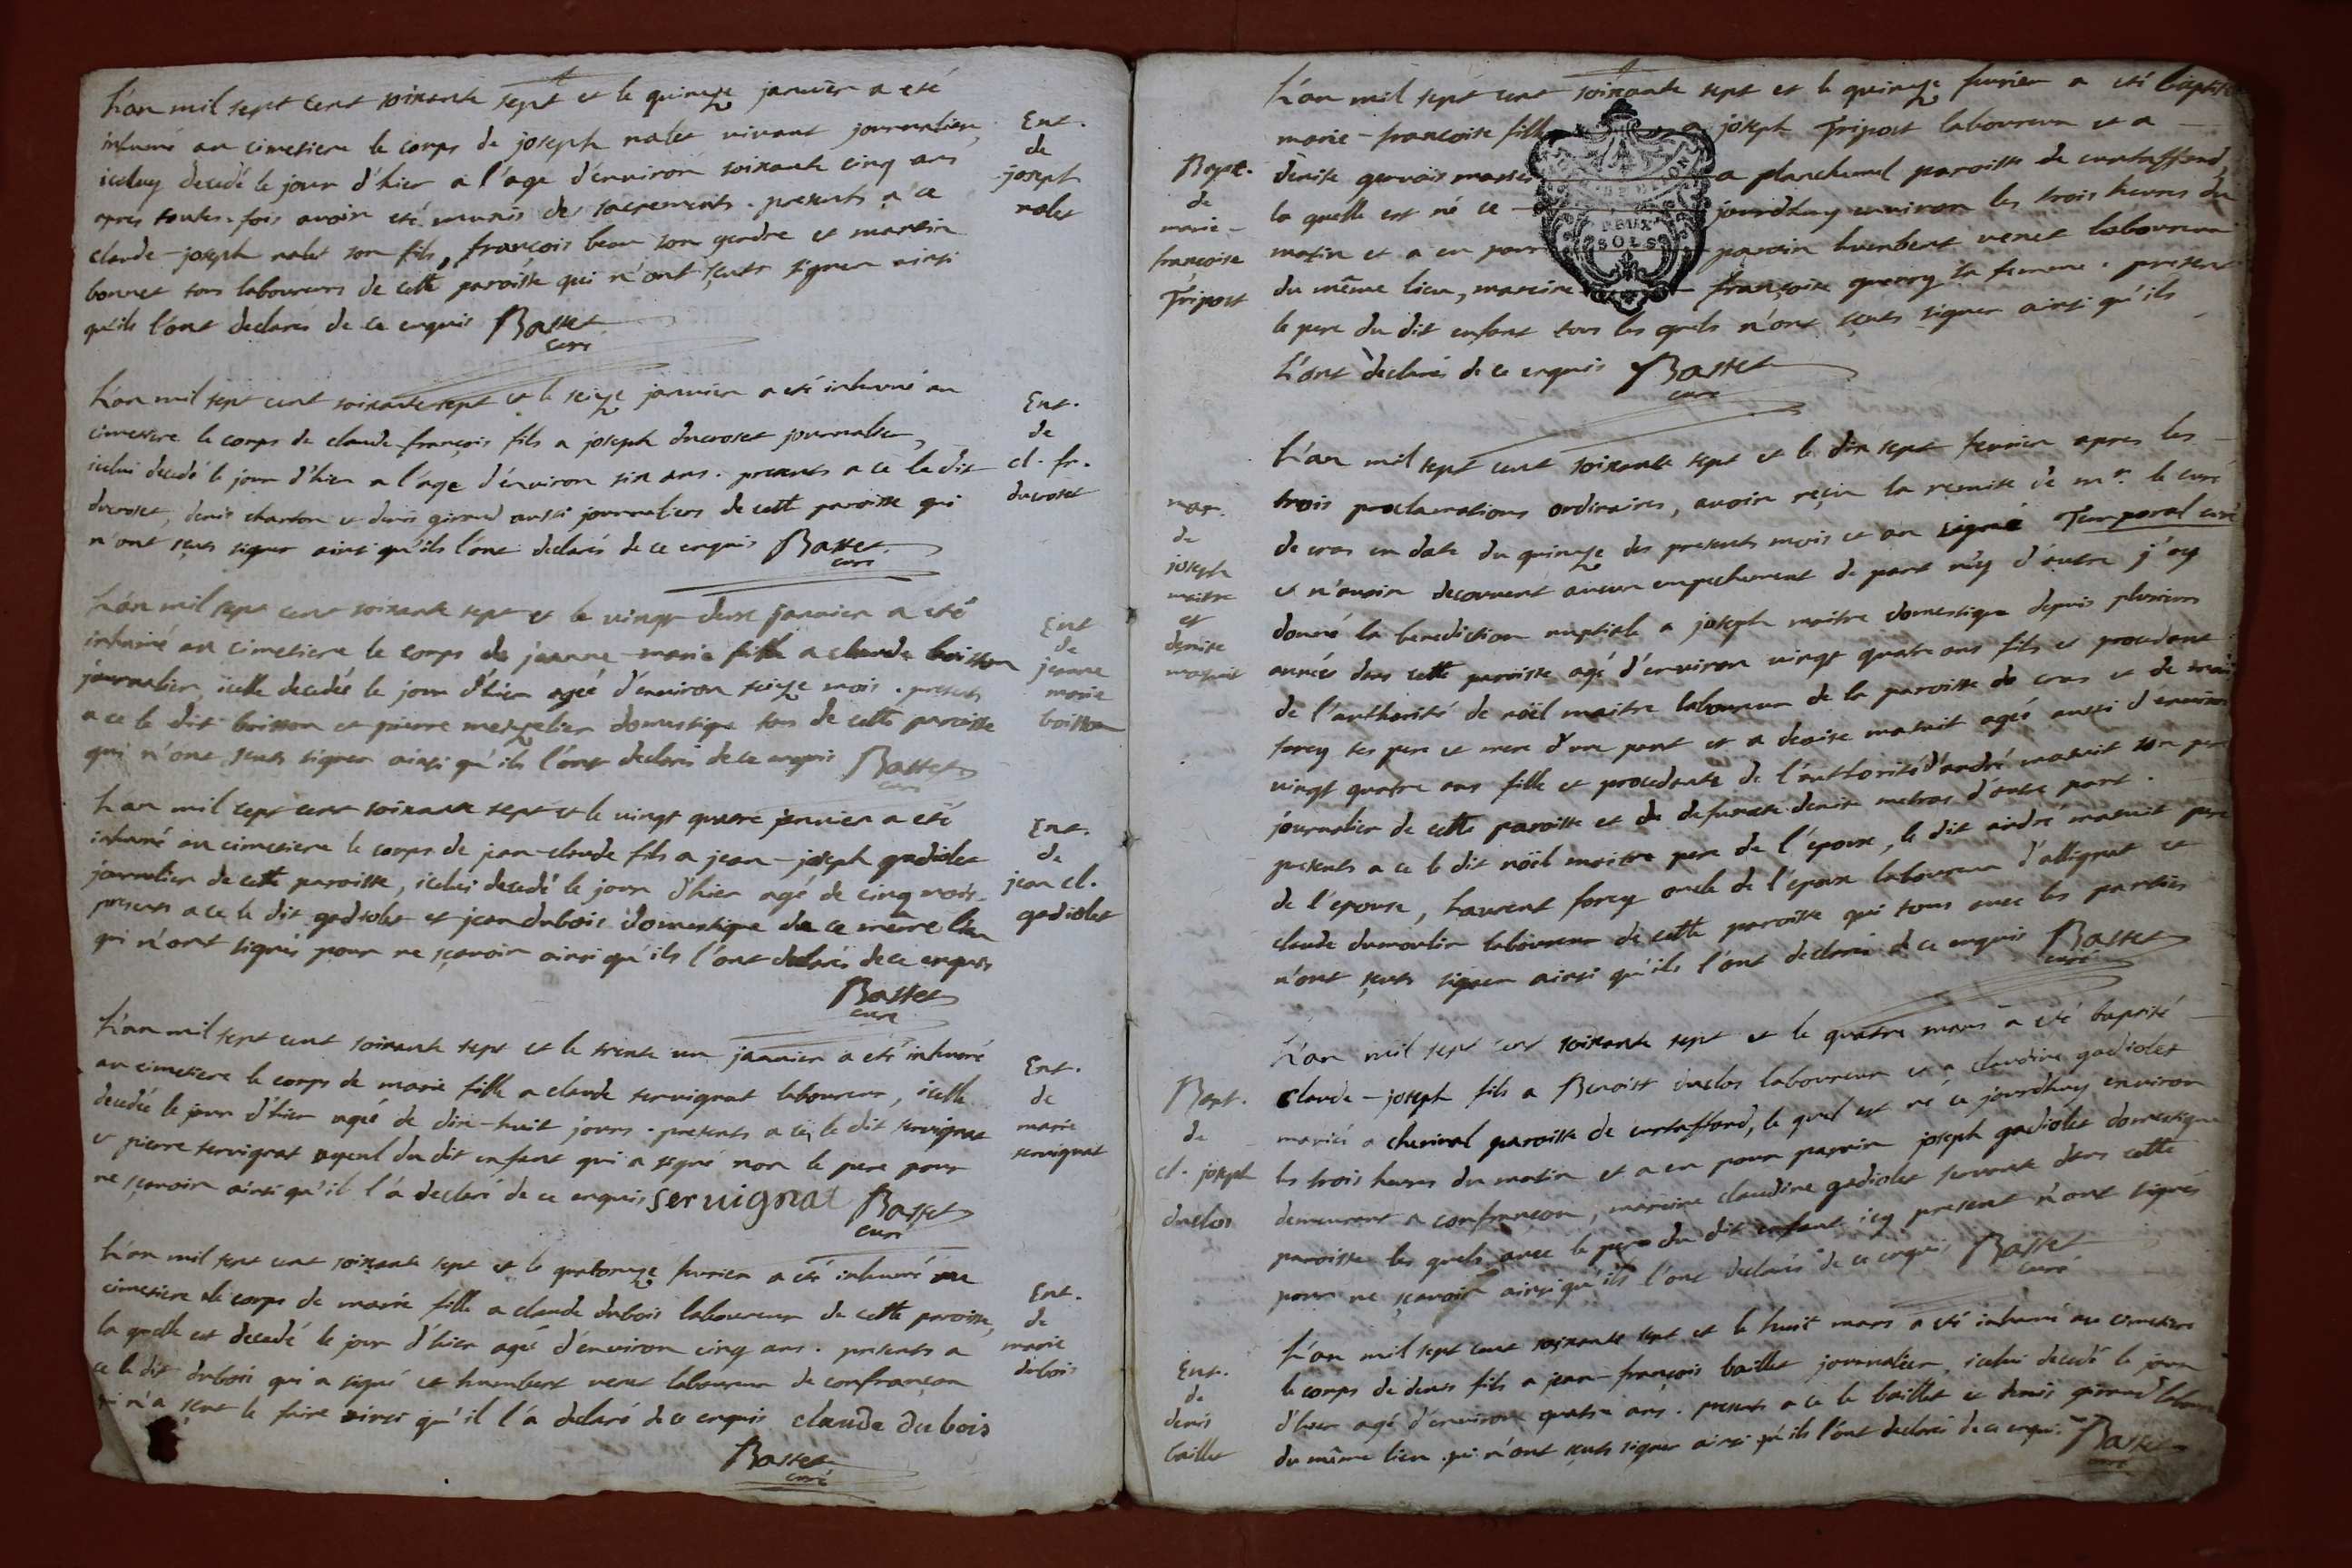 L'an mil sept cent soixante sept et le quinze janvier a eté
inhumé au cimetiere le corps de joseph nalet vivant journalier,
iceluy decedé le jour d'hier a l'age d'environ soixante cinq ans
apres toutes-fois avoir eté munis des sacrements. presents a ce
claude-joseph nalet son fils, françois beau son gendre et martin
bonnet tous laboureurs de cette paroisse qui n'ont sçeuts signer ainsi
qu'ils l'ont declarés de ce enquis Basset
curé
Ent.
de
joseph
nalet
L'an mil sept cent soixante sept et le seize janvier a eté inhumé au
cimetiere le corps de claude-françois fils a joseph ducroset journalier,
icelui decedé le jour d'hier a l'age d'environ six ans. presents a ce le dit
ducroset, denis charton et denis giraud aussi journaliers de cette paroisse qui
n'ont sçeuts signer ainsi qu'ils l'ont declarés de ce enquis Basset
curé
Ent.
de
cl. fr.
ducroset
L'an mil sept cent soixante sept et le vingt deux janvier a eté
inhumé au cimetiere le corps de jeanne-marie fille a claude boisson
journalier, icelle decedée le jour d'hier agéé d'environ seize mois. presents
a ce le dit boisson et pierre mezelier domestique tous de cette paroisse
qui n'ont sçeuts signer ainsi qu'ils l'ont declarés de ce enquis Basset
curé
Ent
de
jeanne
marie
boisson
L'an mil sept cent soixante sept et le vingt quatre janvier a eté
inhumé au cimetiere le corps de jean-claude fils a jean-joseph gadiolet
journalier de cette paroisse, icelui decedé le jour d'hier agé de cinq mois.
presents a ce le dit gadiolet et jean dubois domestique de ce même lieu
qui n'ont signés pour ne sçavoir ainsi qu'ils l'ont declarés de ce enquis
Basset
curé
Ent.
de
jean cl.
gadiolet
L'an mil sept cent soixante sept et le trente un janvier a eté inhumé
au cimetiere le corps de marie fille a claude servignat laboureur, icelle
decedée le jour d'hier agéé de dix-huit jours. presents a ce, le dit servignat
et pierre servignat ayeul du dit enfant qui a signé non le pere pour
ne sçavoir ainsi qu'il l'a declaré de ce enquis servignat Basset
curé
Ent.
de
marie
servignat
L'an mil sept cent soixante sept et le quatorze fevrier a eté inhumé au
cimetiere le corps de marie fille a claude dubois laboureur de cette paroisse,
la quelle est decedé le jour d'hier agé d'environ cinq ans. presents a
ce le dit dubois qui a signé et humbert venet laboureur de confrançon
qui n'a sçeut le faire ainsi qu'il l'a declaré de ce enquis claude dubois
Basset
curé
Ent.
de
marie
dubois
L'an mil sept cent soixante sept et le quinze fevrier a eté baptisé
marie-françoise fille a joseph Tripost laboureur et a
denise gervais mariés a planchemel paroisse de curtaffond,
la quelle est né ce jourdhuy environ les trois heures du
matin et a eu pour parrin humbert venet laboureur
du même lieu, marrine françoise guerry sa femme. present
le pere du dit enfant tous les quels n'ont sçeuts signer ainsi qu'ils
l'ont declarés de ce enquis Basset
curé
Bapt.
de
marie-
françoise
Tripost
DEUX
SOLS
L'an mil sept cent soixante sept et le dix sept fevrier apres les
trois proclamations ordinaires, avoir reçeu la remise de mr. le curé
de cras en date du quinze des presents mois et an signé Temporal curé
et n'avoir decouvert aucun empechement de part n'y d'autre j'ay
donné la benediction nuptiale a joseph maitre domestique depuis plusieurs
années dans cette paroisse agé d'environ vingt quatre ans fils et procedant
de l'authorité de noël maitre laboureur de la paroisse de cras et de marie
forey ses pere et mere d'une part et a denise matuit agéé aussi d'environ
vingt quatre ans fille et procedante de l'authorité d'andré matuit son pere
journalier de cette paroisse et de defunete denise metras d'autre part.
presents a ce le dit noël maitre pere de l'epoux, le dit andré matuit pere
de l'epouse, Laurent forey oncle de l'epoux laboureur d'attignat et
claude dumoulin laboureur de cette paroisse qui tous avec les parties
n'ont sçeuts signer ainsi qu'ils l'ont declarés de ce enquis Basset
curé
mar.
de
joseph
maitre
et
denise
matuit
L'an mil sept cent soixante sept et le quatre mars a eté baptisé
claude-joseph fils a Benoist duclos laboureur et a claudine gadiolet
mariés a cherinal paroisse de curtaffond, le quel est né ce jourdhuy environ
les trois heures du matin et a eu pour parrin joseph gadiolet domestique
demeurant a confrançon, marrine claudine gadiolet servante dans cette
paroisse les quels avec le pere du dit enfant icy present n'ont signés
pour ne sçavoir ainsi qu'ils l'ont declarés de ce enquis Basset
curé
Bapt.
de
cl. joseph
duclos
L'an mil sept cent soixante sept et le huit mars a eté inhumé au cimetiere
le corps de denis fils a jean-françois baillet journalier, icelui decedé le jour
d'hier agé d'environ quatre ans. presents a ce le baillet et denis giraud
du même lieu qui n'ont sçeuts signer ainsi qu'ils l'ont declarés de ce enquis Basset
curé
Ent.
de
denis
baillet